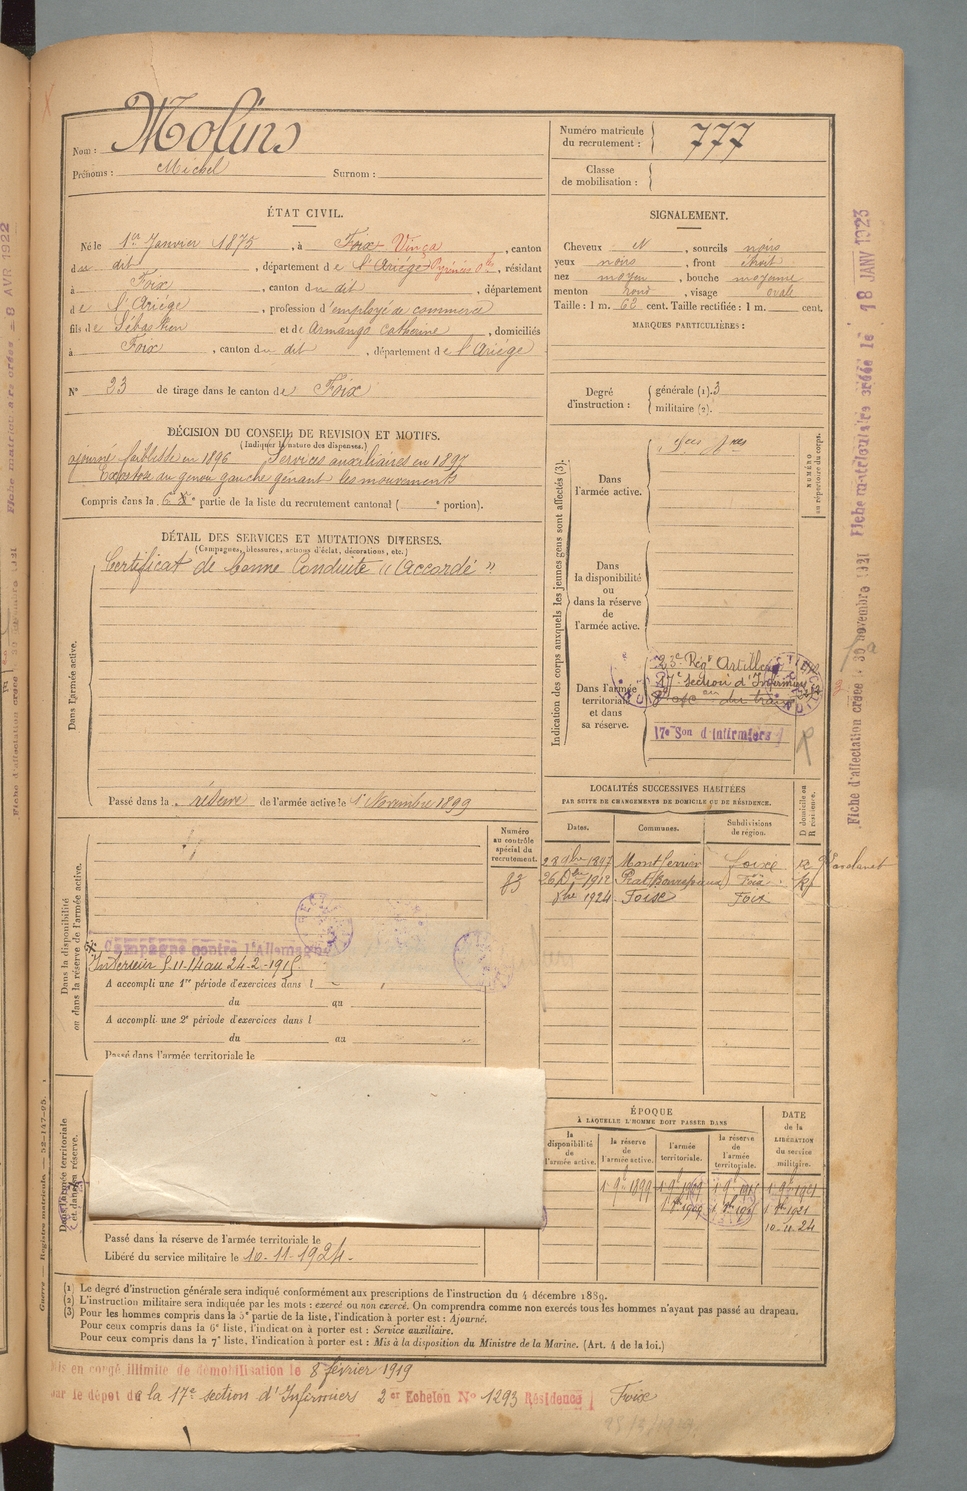 Nom : Molins
Prénoms : Michel Surnom :
Numéro matricule du recrutement : 777
Classe de mobilisation :
ÉTAT CIVIL.
Né le 1er Janvier 1875, à Foix Vinça, canton
du dit, département de l'Ariège Pyrénées Oles, résidant
à Foix, canton du dit, département
de l'Ariège, profession d'employé de commerce
fils de Sébastien et de Armango Catherine, domiciliés
à Foix, canton du dit, département de l'Ariège
N° 23 de tirage dans le canton de Foix
SIGNALEMENT.
Cheveux N, sourcils noirs
yeux noirs, front étroit
nez moyen, bouche moyenne
menton rond, visage ovale
Taille : 1 m. 62 cent. Taille rectifiée : 1 m. cent.
MARQUES PARTICULIÈRES :
Degré d'instruction : générale (1). 3
militaire (2).
DÉCISION DU CONSEIL DE REVISION ET MOTIFS.
(Indiquer la nature des dispenses.)
ajourné faiblesse en 1896 Services auxiliaires en 1897
Exostose du genou gauche gênant les mouvements
Compris dans la 6e partie de la liste du recrutement cantonal ( e portion).
DÉTAIL DES SERVICES ET MUTATIONS DIVERSES.
(Campagnes, blessures, actions d'éclat, décorations, etc.)
Dans l'armée active.
Certificat de bonne Conduite "Accordé"
Passé dans la réserve de l'armée active le 1er Novembre 1899
Indication des corps auxquels les jeunes gens sont affectés (3).
NUMÉRO au répertoire du corps.
Dans l'armée active.
Dans la disponibilité ou dans la réserve de l'armée active.
Dans l'armée territoriale et dans sa réserve.
23e Régt Artillerie
17e Section d'Infirmiers
du train
17e Son d'Infirmiers
LOCALITÉS SUCCESSIVES HABITÉES
PAR SUITE DE CHANGEMENTS DE DOMICILE OU DE RÉSIDENCE.
Dates. Communes. Subdivisions de région. D domicile ou R résidence.
28 9bre 1897 Montferrier Foix
26 Dbre 1912 Prat Bonrepaux Foix
1924 Foix Foix
Dans la disponibilité ou dans la réserve de l'armée active.
Numéro au contrôle spécial du recrutement.
83
Campagne contre l'Allemagne
Intérieur 5-11-14 au 24-2-1915
A accompli une 1re période d'exercices dans l
du au
A accompli une 2e période d'exercices dans l
du au
Passé dans l'armée territoriale le
Dans l'armée territoriale et dans sa réserve.
Passé dans la réserve de l'armée territoriale le
Libéré du service militaire le 10-11-1924-
ÉPOQUE
À LAQUELLE L'HOMME DOIT PASSER DANS
la disponibilité de l'armée active. la réserve de l'armée active. l'armée territoriale. la réserve de l'armée territoriale.
DATE de la LIBÉRATION du service militaire.
1 9e 1899 1 9e 1909 1 9e 1915 1 9e 1921
1921
10-11-24
(1) Le degré d'instruction générale sera indiqué conformément aux prescriptions de l'instruction du 4 décembre 1889.
(2) L'instruction militaire sera indiquée par les mots : exercé ou non exercé. On comprendra comme non exercés tous les hommes n'ayant pas passé au drapeau.
(3) Pour les hommes compris dans la 5e partie de la liste, l'indication à porter est : Ajourné.
Pour ceux compris dans la 6e liste, l'indication à porter est : Service auxiliaire.
Pour ceux compris dans la 7e liste, l'indication à porter est : Mis à la disposition du Ministre de la Marine. (Art. 4 de la loi.)
Mis en congé illimité de démobilisation le 8 février 1919
par le dépôt de la 17e section d'Infirmiers 2er Echelon N° 1293 Résidence Foix
Guerre — Registre matricule — 52-147-95.
Fiche d'affectation créée : 30 novembre 1921 Fiche matriculaire créée le 18 JANV 1923